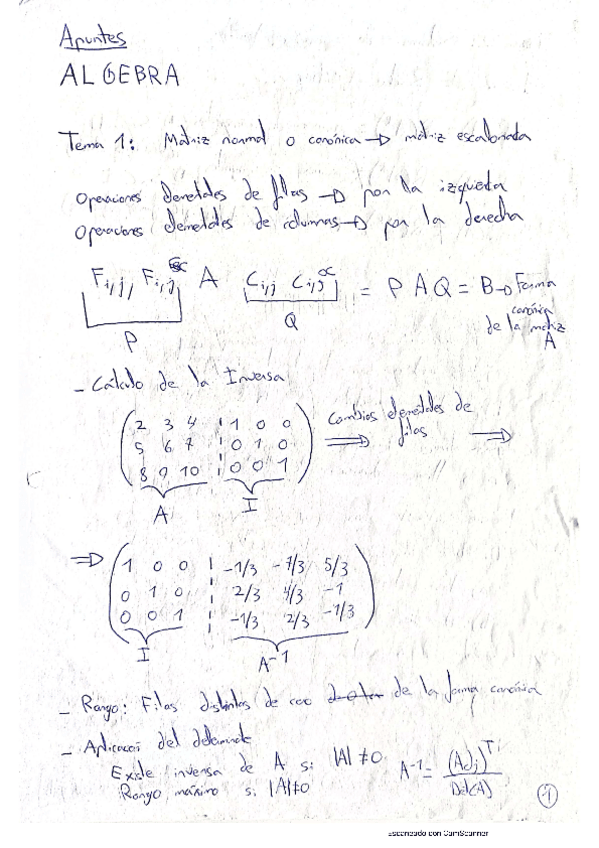 Apuntes
ALGEBRA
Tema 1: Matriz normal o canónica → matriz escalonada
Operaciones elementales de filas → por la izquierda
Operaciones elementales de columnas → por la derecha
F i,j, F i,j A C i,j C i,j ∝ = P A Q = B → Forma
canónica
P Q de la matriz
A
- Cálculo de la Inversa
2 3 4 | 1 0 0 Cambios elementales de
5 6 7 | 0 1 0 ⇒ filas ⇒
8 9 10 | 0 0 1
A I
⇒ 1 0 0 | -1/3 -7/3 5/3
0 1 0 | 2/3 4/3 -1
0 0 1 | -1/3 2/3 -1/3
I A⁻¹
- Rango: Filas distintas de cero de la forma canónica
- Aplicación del determinante
Existe inversa de A si |A| ≠ 0 A⁻¹ = (Adj)ᵀ / Det(A)
Rango máximo si |A| ≠ 0
1
Escaneado con CamScanner